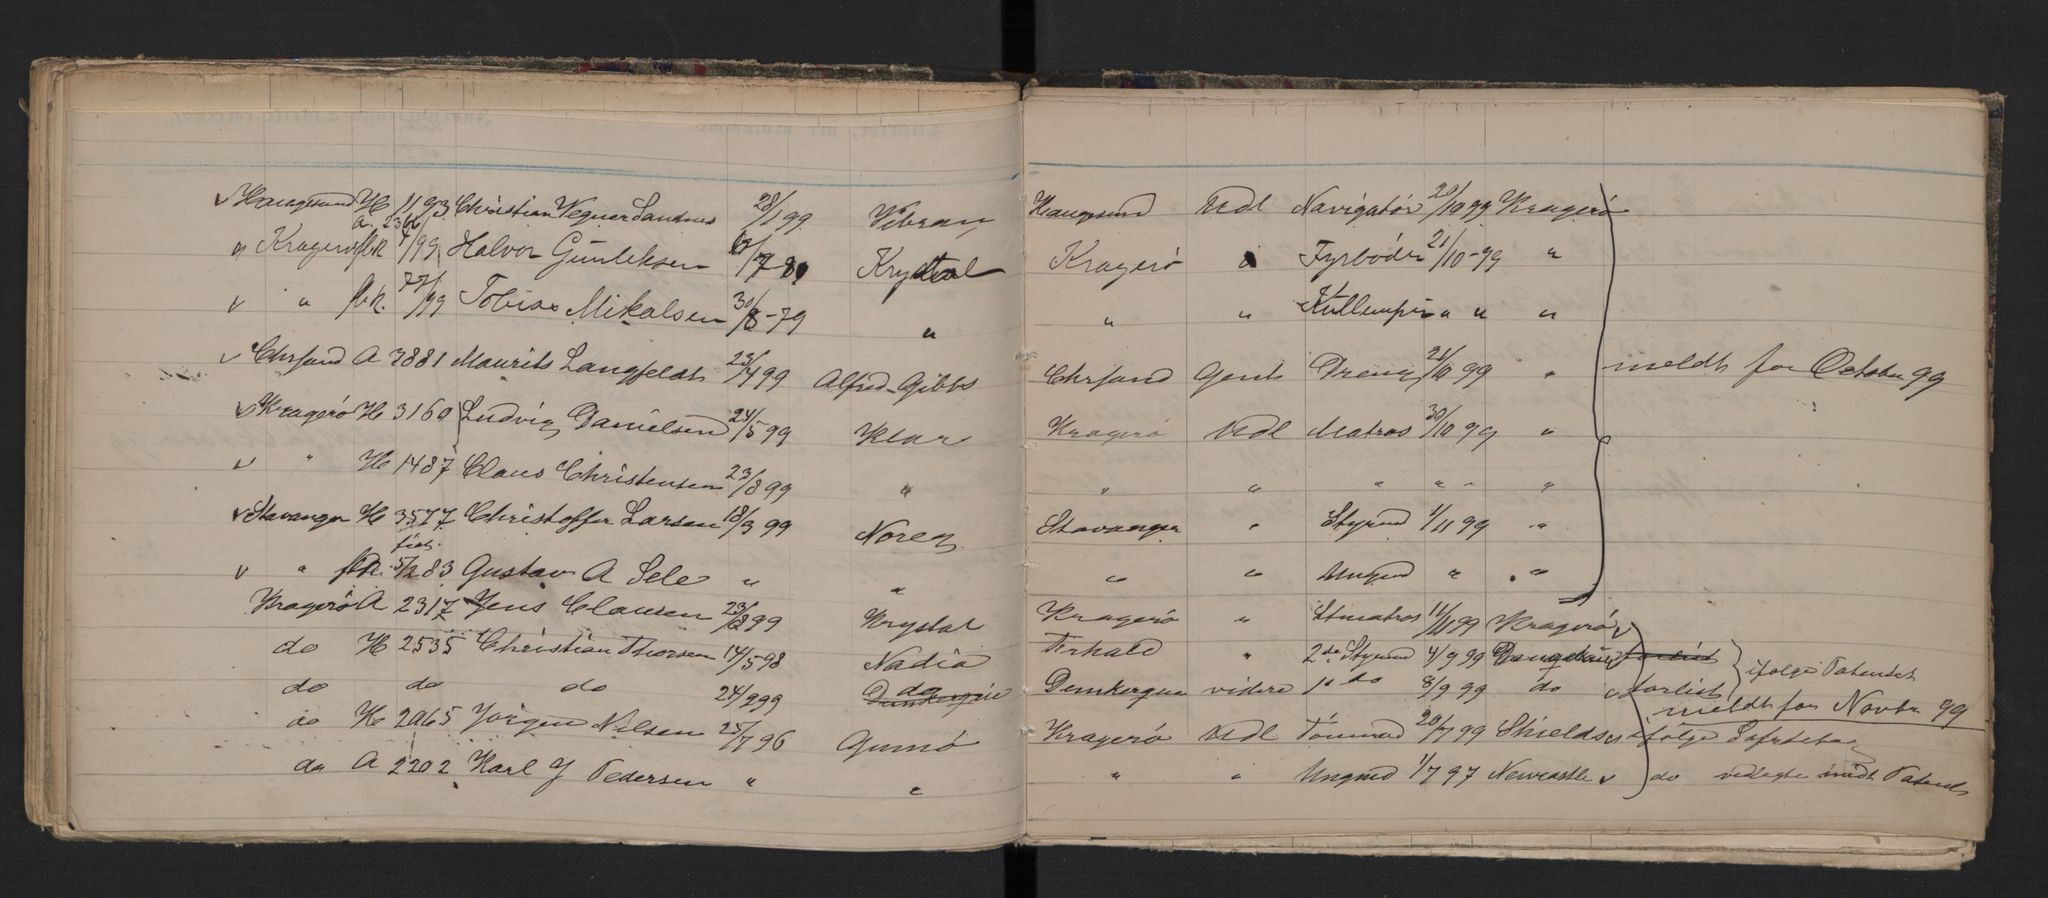 ✓ Haugesund H 1193 Christian Wegner Sandnes 28/1 99 Vibran Haugesund Udl Navigatör 20/10 99 Kragerö
A. 2362
„ Kragerö fbk 4/99 Halvor Gunleksen /7-8 Krydtal Kragerö „ Fyrböder 21/10-99 „
✓ „ fbk. 77/99 Tobias Mikalsen 30/8-79 „ „ „ Kullemper „ „ „
✓ Chrsand A 3881 Maurits Langfeldt 23/4 99 Alfred Gibbs Chrsand Genl Dreng 21/10 99 „ meldt for October 99
✓ Kragerö H 3160 Ludvig Danielsen 24/5 99 Klar Kragerö Udl Matros 30/10 99 „
✓ „ H 1487 Claus Christensen 23/8 99 „ „ „ „ „ „ „
✓ Stavanger H 3577 Christoffer Larsen 18/9 99 Noreg Stavanger „ Styrmd 1/11 99 „
födt
✓ „ fbk. 5/2 83 Gustav A Sele „ „ „ „ Ungmd „ „
Kragerö A 2317 Jens Clausen 23/8 99 Krystal Kragerö „ Ltmatros 11/11 99 Kragerö ✓
do H 2535 Christian Thorsen 14/5 98 Nadia „ 2de Styrmd 4/9 99 forlist
ifølge Patentet
do do do 24/2 99 do Dunkerque Dunkerque videre 1ste do 8/9 99 do ✓ forlist
meldt for Novbr 99
do H 2065 Jörgen Nilsen 25/7 96 Gumö Kragerö Udl Tömmd 20/7 99 Shields ✓ ifølge
do A 2202 Karl J Pedersen „ „ „ „ Ungmd 1/7 97 Newcastle ✓ do vedlagte Patent